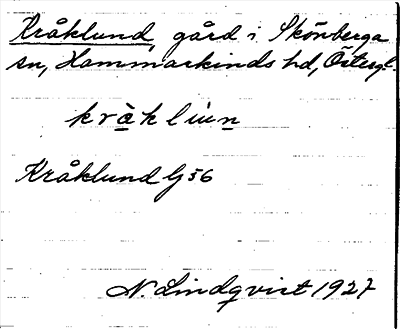 Kråklund, gård i Skönberga
sn, Hammarkinds hd, Östergl.
kråkliun
Kråklund G56
N. Lindqvist 1927